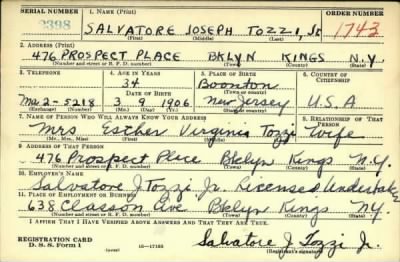 SERIAL NUMBER 1. NAME (Print) ORDER NUMBER
2398 SALVATORE JOSEPH TOZZI, Jr 1743
(First) (Middle) (Last)
2. ADDRESS (Print)
476 PROSPECT PLACE BKLYN KINGS N.Y.
(Number and street or R. F. D. number) (Town) (County) (State)
3. TELEPHONE 4. AGE IN YEARS 5. PLACE OF BIRTH 6. COUNTRY OF CITIZENSHIP
34 Boonton
DATE OF BIRTH (Town or county)
Ma2-5218 3 9 1906 New Jersey U.S.A
(Exchange) (Number) (Mo.) (Day) (Yr.) (State or country)
7. NAME OF PERSON WHO WILL ALWAYS KNOW YOUR ADDRESS 8. RELATIONSHIP OF THAT PERSON
Mrs Esther Virginia Tozzi Wife
(Mr., Mrs., Miss) (First) (Middle) (Last)
9. ADDRESS OF THAT PERSON
476 Prospect Place Bklyn Kings N.Y.
(Number and street or R. F. D. number) (Town) (County) (State)
10. EMPLOYER'S NAME
Salvatore J Tozzi Jr. Licensed Undertaker
11. PLACE OF EMPLOYMENT OR BUSINESS
638 Classon Ave Bklyn Kings NY.
(Number and street or R. F. D. number) (Town) (County) (State)
I AFFIRM THAT I HAVE VERIFIED ABOVE ANSWERS AND THAT THEY ARE TRUE.
REGISTRATION CARD
D. S. S. Form 1 16-17105 Salvatore J Tozzi Jr.
(Registrant's signature)